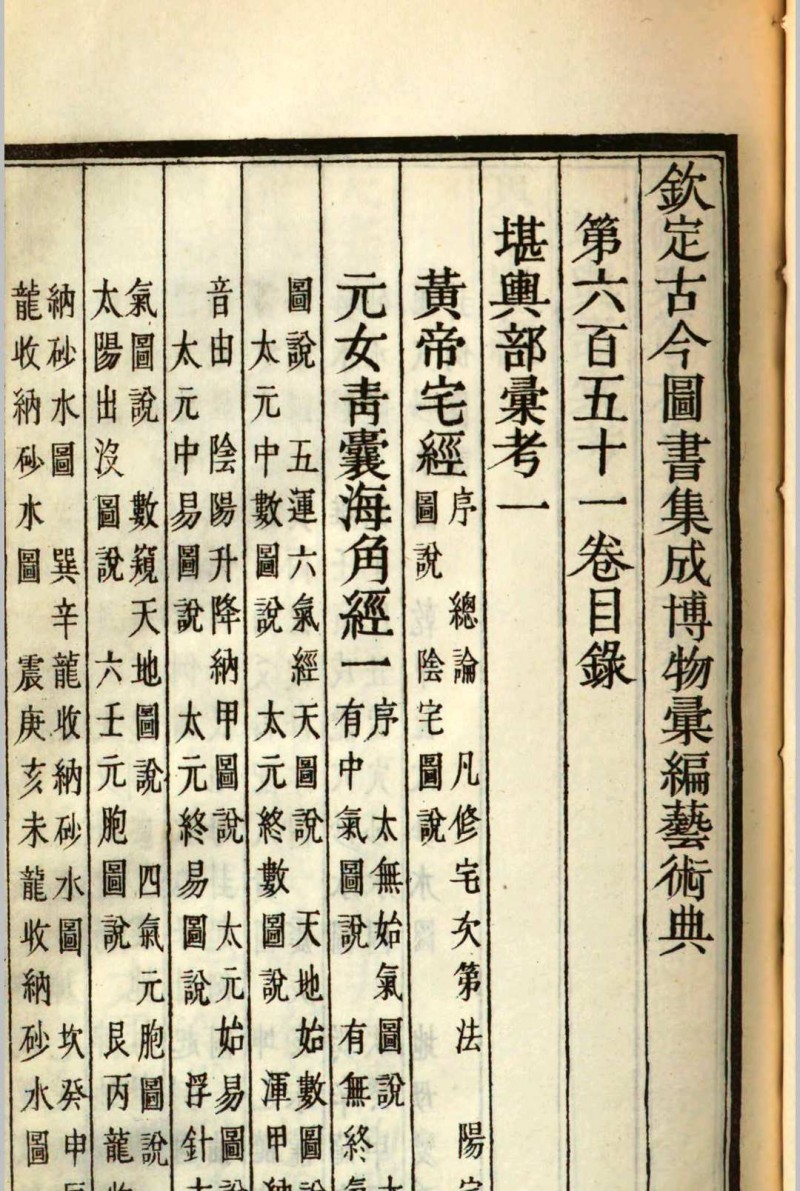 欽定古今圖書集成博物彙編藝術典
第六百五十一卷目錄
堪輿部彙考一
黃帝宅經
序 總論 凡修宅次第法 陽宅
圖說 陰宅圖說
元女靑囊海角經一
序 太無始氣圖說
有中氣圖說 有無終氣
圖說 五運六氣經天圖說 天地始數圖說
太元中數圖說 太元終數圖說 渾甲納
音由 陰陽升降納甲圖說 太元始易圖說
太元中易圖說 太元終易圖說 浮針
氣圖說 數窺天地圖說 四氣元胞圖說
太陽出沒圖說 六壬元胞圖說 艮丙龍收
納砂水圖 巽辛龍收納砂水圖 坎癸申辰
龍收納砂水圖 震庚亥未龍收納砂水圖